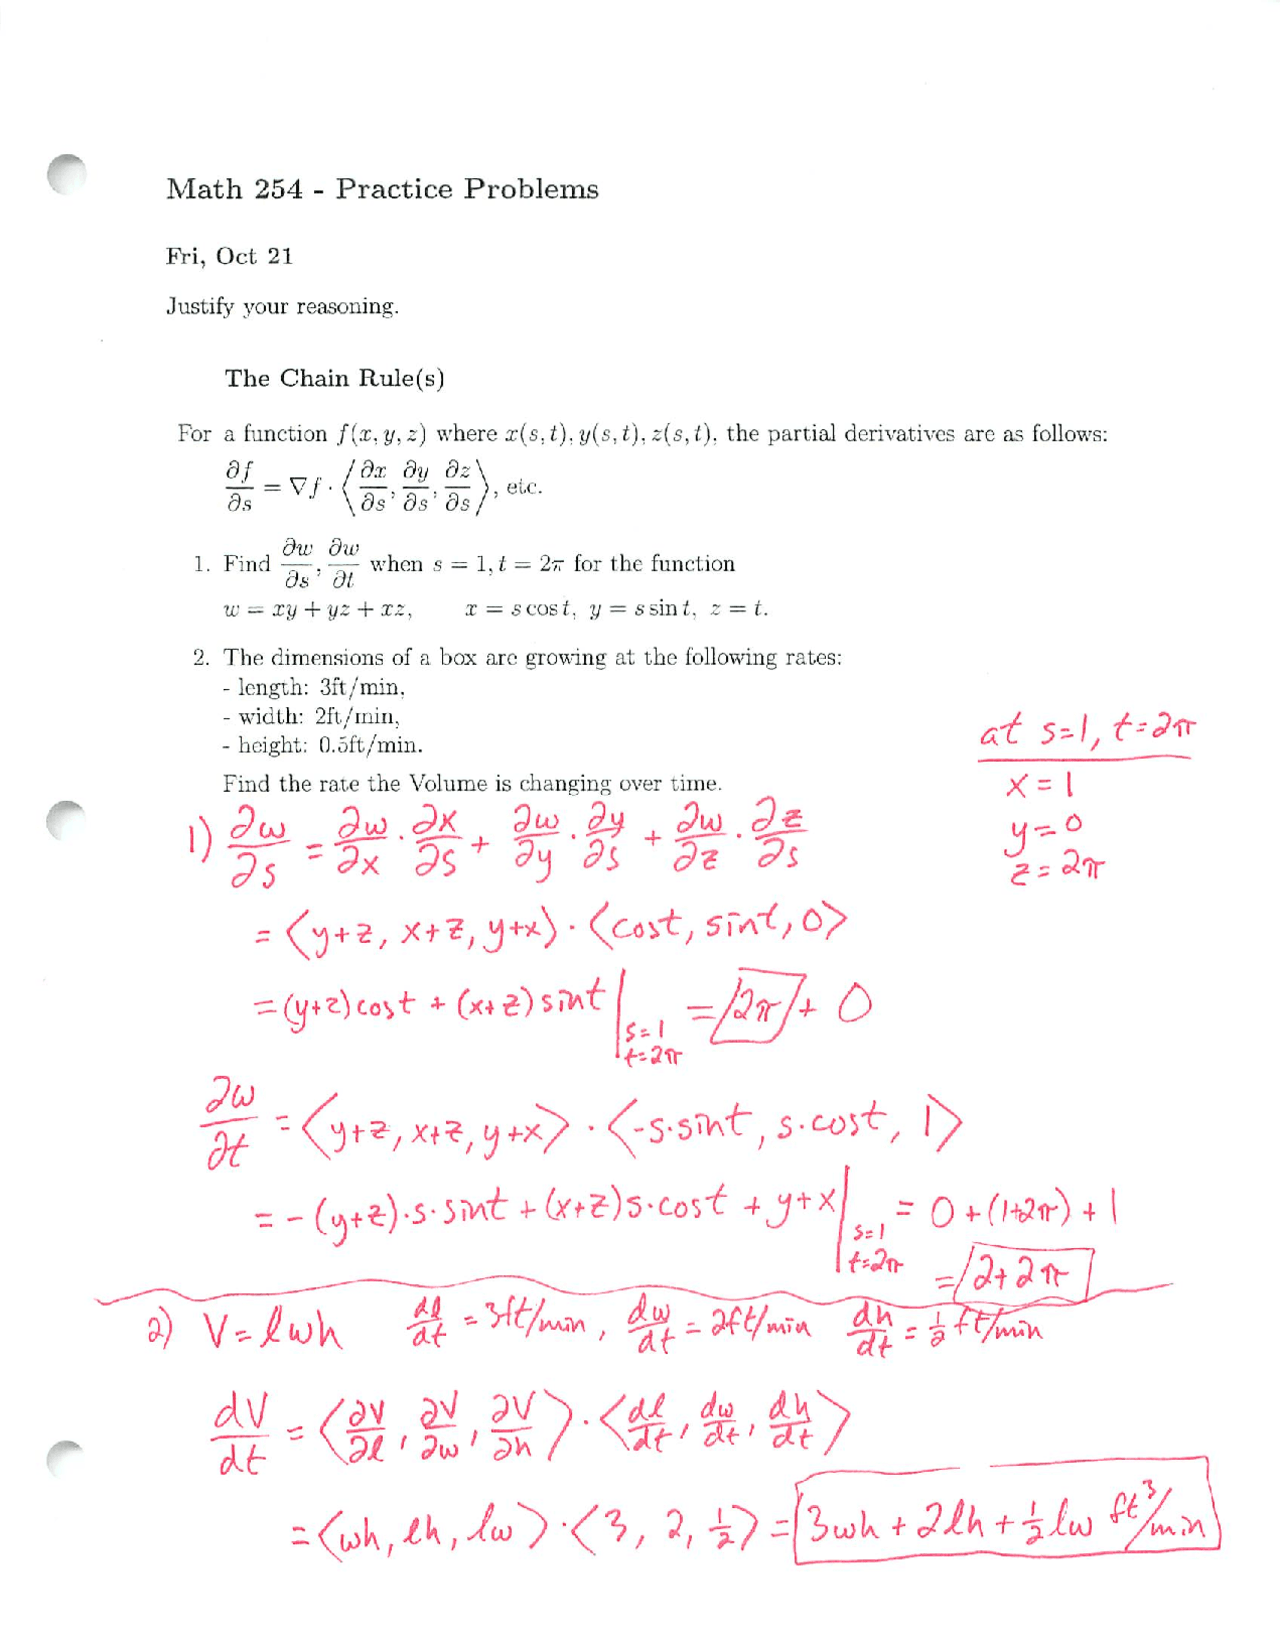 Math 254 - Practice Problems
Fri, Oct 21
Justify your reasoning.
The Chain Rule(s)
For a function f(x, y, z) where x(s, t), y(s, t), z(s, t), the partial derivatives are as follows:
∂f/∂s = ∇f · ⟨∂x/∂s, ∂y/∂s, ∂z/∂s⟩, etc.
1. Find ∂w/∂s, ∂w/∂t when s = 1, t = 2π for the function
w = xy + yz + xz, x = s cos t, y = s sin t, z = t.
2. The dimensions of a box are growing at the following rates:
- length: 3ft/min,
- width: 2ft/min,
- height: 0.5ft/min.
Find the rate the Volume is changing over time.
at s=1, t=2π
x = 1
y = 0
z = 2π
1) ∂w/∂s = ∂w/∂x · ∂x/∂s + ∂w/∂y · ∂y/∂s + ∂w/∂z · ∂z/∂s
= ⟨y+z, x+z, y+x⟩ · ⟨cost, sint, 0⟩
= (y+z)cost + (x+z)sint | s=1 t=2π = 2π + 0
∂w/∂t = ⟨y+z, x+z, y+x⟩ · ⟨-s·sint, s·cost, 1⟩
= -(y+z)·s·sint + (x+z)s·cost + y+x | s=1 t=2π = 0 + (1+2π) + 1
= 2+2π
2) V = lwh dl/dt = 3ft/min, dw/dt = 2ft/min dh/dt = 1/2 ft/min
dV/dt = ⟨∂V/∂l, ∂V/∂w, ∂V/∂h⟩ · ⟨dl/dt, dw/dt, dh/dt⟩
= ⟨wh, lh, lw⟩ · ⟨3, 2, 1/2⟩ = 3wh + 2lh + 1/2 lw ft³/min